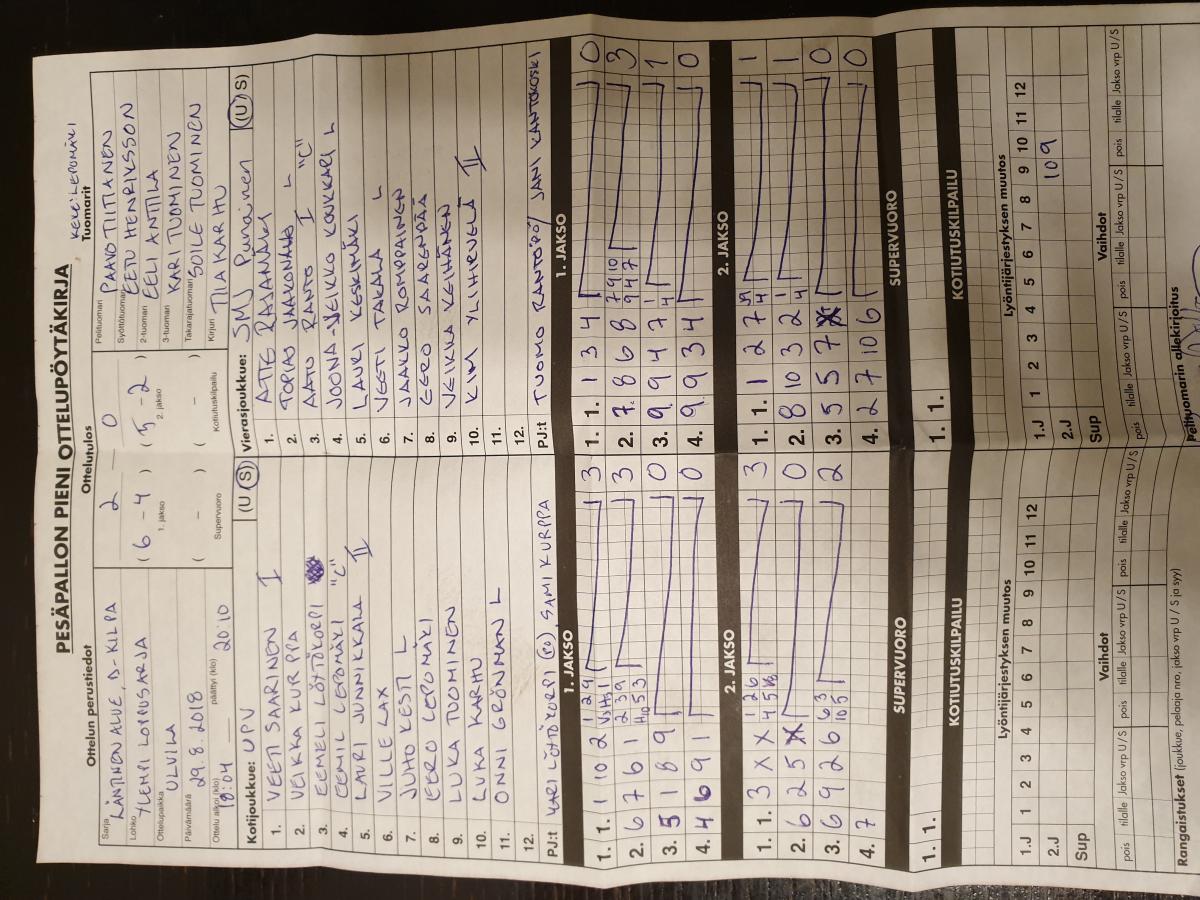 PESÄPALLON PIENI OTTELUPÖYTÄKIRJA
Ottelun perustiedot
Sarja LÄNTINEN ALUE, D-KILPA
Lohko YLEMPI LOPPUSARJA
Ottelupaikka ULVILA
Päivämäärä 29.8.2018
Ottelu alkoi (klo) 18:04 päättyi (klo) 20:10
Ottelutulos
2 – 0
( 6 – 4 ) ( 5 – 2 )
1. jakso 2. jakso
( – ) ( – )
Supervuoro Kotiutuskilpailu
Tuomarit
Pelituomari PAAVO TIITIANEN
Syöttötuomari EETU HENRIKSSON
2-tuomari EELI ANTTILA
3-tuomari KARI TUOMINEN
Takarajatuomari SOILE TUOMINEN
Kirjuri TIIA KARHU
Kotijoukkue: UPV (U S)
1. VEETI SAARINEN I
2. VEIKKA KURPPA
3. EEMELI LÖYTÖKORPI
4. EEMIL LEPOMÄKI "C"
5. LAURI JUNNIKKALA II
6. VILLE LAX
7. JUHO KESTI L
8. EERO LEPOMÄKI
9. LUKA TUOMINEN
10. LUKA KARHU
11. ONNI GRÖNMAN L
12.
PJ:t KARI LÖYTÖKORPI, SAMI KURPPA
Vierasjoukkue: SMJ Punainen (U S)
1. ATTE RAJAMÄKI
2. TOPIAS JAAKONAHO L
3. AATU RANTO I "C"
4. JOONA-VEIKKO KOUKKARI L
5. LAURI KESKIMÄKI
6. VEETI TAKALA L
7. JAAKKO ROMPPAINEN
8. EERO SAARENPÄÄ
9. VEIKKA KEIHÄNEN
10. KIMI YLIHIRVELÄ II
11.
12.
PJ:t TUOMO RANTO / JANI KANTOKOSKI
1. JAKSO
1. 1. 1 10 2 3
2. 6 7 6 1 3
3. 5 1 8 9 0
4. 4 6 9 1 0
1. JAKSO
1. 1. 1 3 4 0
2. 7. 8 6 8 3
3. 9. 9 4 7 1
4. 9 9 3 4 0
2. JAKSO
1. 1. 3 X X 3
2. 6 2 5 0
3. 6 9 2 6 2
4. 7
2. JAKSO
1. 1. 1 2 7 1
2. 8 10 3 2 1
3. 5 5 7 0
4. 2 7 10 6 0
SUPERVUORO
1. 1.
SUPERVUORO
1. 1.
KOTIUTUSKILPAILU
KOTIUTUSKILPAILU
Lyöntijärjestyksen muutos
1.J 1 2 3 4 5 6 7 8 9 10 11 12
2.J
Sup
Lyöntijärjestyksen muutos
1.J 1 2 3 4 5 6 7 8 9 10 11 12
2.J 10 9
Sup
Vaihdot
pois tilalle Jakso vrp U/S pois tilalle Jakso vrp U/S pois tilalle Jakso vrp U/S
Vaihdot
pois tilalle Jakso vrp U/S pois tilalle Jakso vrp U/S pois tilalle Jakso vrp U/S
Rangaistukset (joukkue, pelaaja nro, jakso vrp U / S ja syy)
Pelituomarin allekirjoitus